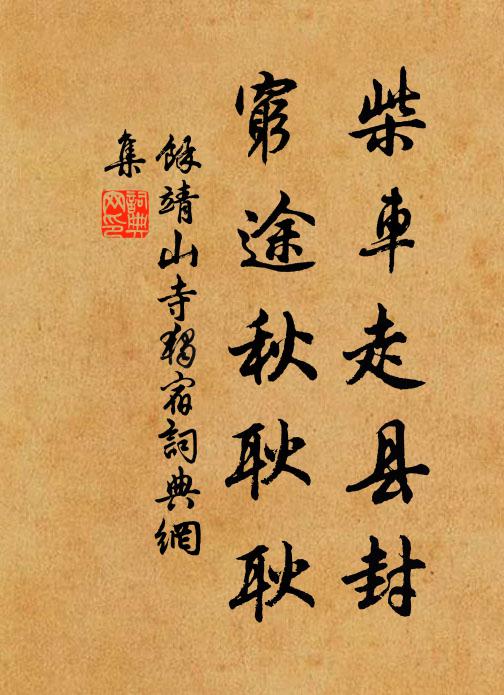 柴車走县封
穷途秋耿耿
餘靖山寺獨宿詞典網
集
詞典
网印